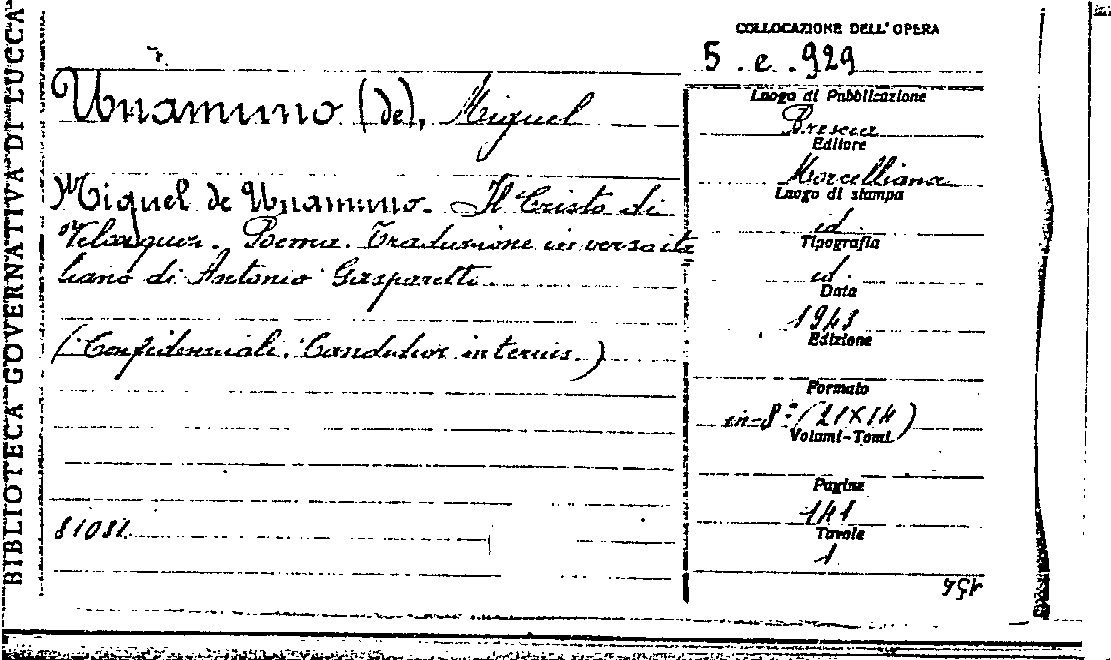 BIBLIOTECA GOVERNATIVA DI LUCCA
COLLOCAZIONE DELL'OPERA
5 . e . 929
Unamuno (de), Miguel
Luogo di Pubblicazione
Brescia
Editore
Morcelliana
Luogo di stampa
id.
Tipografia
id.
Data
1948
Edizione
Formato
in-8° (21X14)
Volumi-Tomi
Pagine
141
Tavole
1
Miguel de Unamuno. Il Cristo di
Velasquez. Poema. Traduzione in verso ita
liano di Antonio Gasparetti.
81081
454